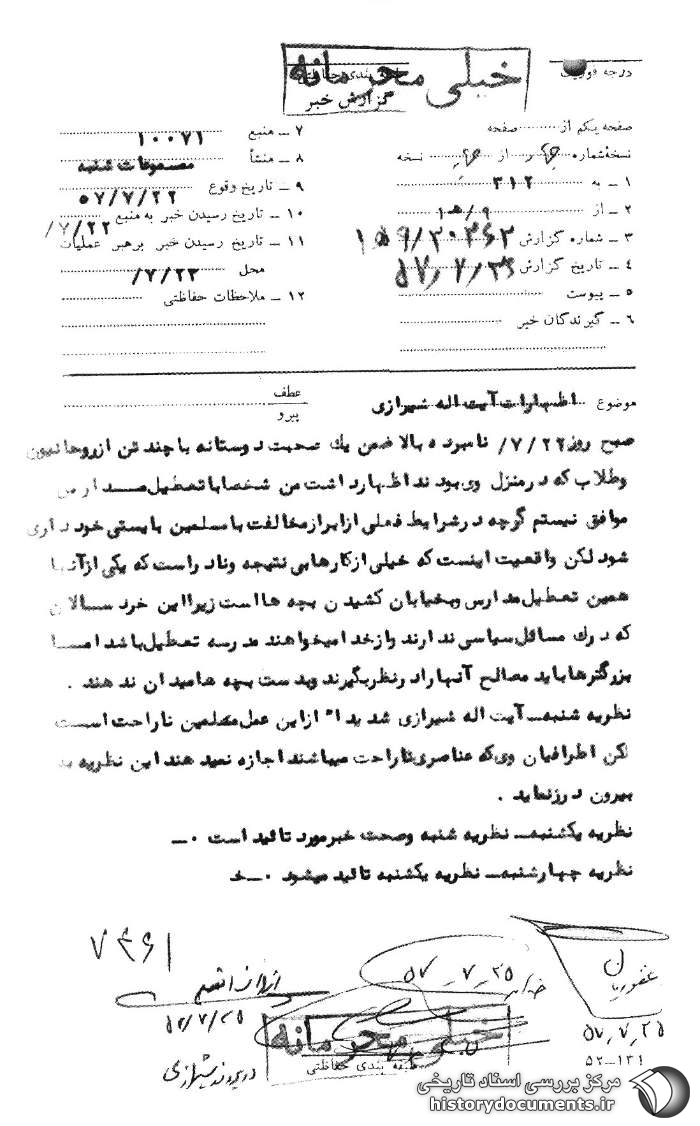 خیلی محرمانه
طبقه بندی حفاظتی
گزارش خبر
درجه فوریت
صفحه یکم از صفحه
نسخهٔ شماره از نسخه
۱ ــ به ۳۱۲
۲ ــ از ۹/ه۱
۳ ــ شماره گزارش
۴ ــ تاریخ گزارش
۵ ــ پیوست
۶ ــ گیرندگان خبر
۷ ــ منبع ۱۰۰۷۱
۸ ــ منشأ مسموعات شنبه
۹ ــ تاریخ وقوع ۵۷/۷/۲۲
۱۰ ــ تاریخ رسیدن خبر به منبع ۷/۲۲/
۱۱ ــ تاریخ رسیدن خبر برهبر عملیات
محل ۷/۲۳/
۱۲ ــ ملاحظات حفاظتی
موضوع اظهارات آیت اله شیرازی
عطف
پیرو
صبح روز ۷/۲۲/ نامبرده بالا ضمن یك صحبت دوستانه با چند تن از روحانیون
وطلاب که در منزل وی بودند اظهار داشت من شخصا با تعطیل مدارس
موافق نیستم گرچه در شرایط فعلی از ابراز مخالفت با مسلمین بایستی خود داری
شود لکن واقعیت اینست که خیلی از کارها بی نتیجه ونادر است که یکی از آنها
همین تعطیل مدارس وبخیابان کشیدن بچه ها است زیرا این خرد سالان
که درك مسائل سیاسی ندارند واز خدا میخواهند مدرسه تعطیل باشد اما
بزرگترها باید مصالح آنها را در نظر بگیرند وبدست بچه ها میدان ندهند .
نظریه شنبه ــ آیت اله شیرازی شدیداً از این عمل معلمین ناراحت است
لکن اطرافیان وی که عناصری ناراحت میباشند اجازه نمیدهند این نظریه به
بیرون درز نماید .
نظریه یکشنبه ــ نظریه شنبه وصحت خبر مورد تائید است ۰ــ
نظریه چهارشنبه ــ نظریه یکشنبه تائید میشود ۰ــخ
غفوریان
۵۷ـ۷ـ۲۵
۵۷ـ۷ـ۲۵
۵۲ــ۱۳۱
خیلی محرمانه
طبقه بندی حفاظتی
مرکز بررسی اسناد تاریخی
historydocuments.ir